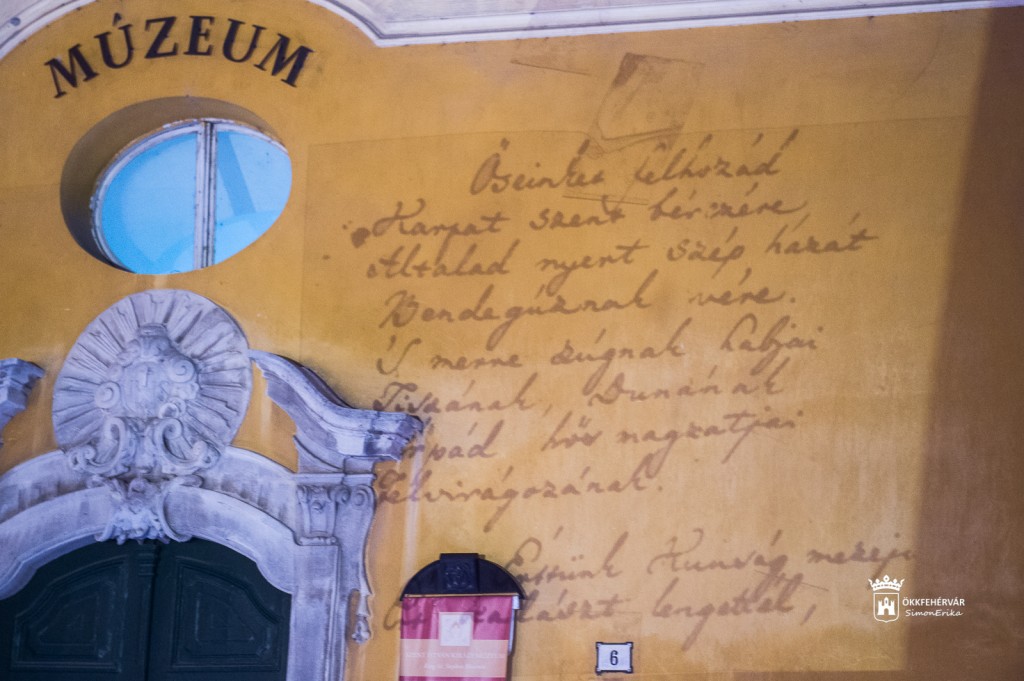 MÚZEUM
Őseinket felhozád
Kárpát szent bérczére
Általad nyert szép hazát
Bendegúznak vére.
'S merre zúgnak habjai
Tiszának, Dunának
Árpád hős magzatjai
Felvirágozának.
Értünk Kunság mezején
lengettél,
6
ÖKKFEHÉRVÁR
SimonErika